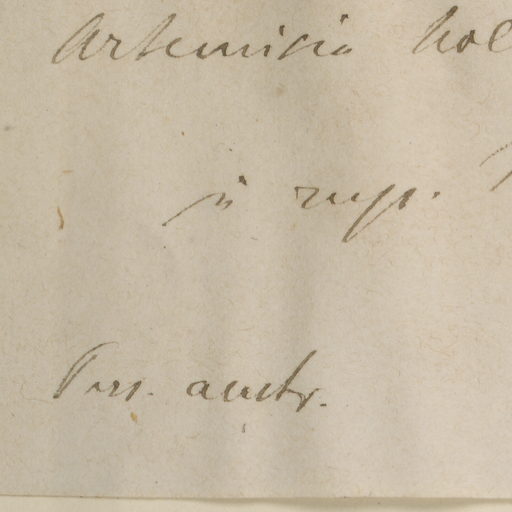 Artemisia hol
in rup.
Pers. austr.